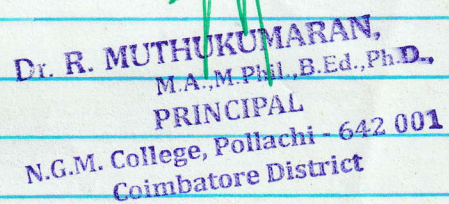 Dr. R. MUTHUKUMARAN,
M.A.,M.Phil.,B.Ed.,Ph.D.,
PRINCIPAL
N.G.M. College, Pollachi - 642 001
Coimbatore District